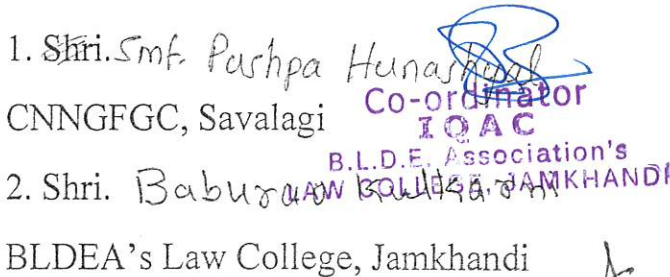 1. Shri. Smt. Pushpa Hunashyal
Co-ordinator
CNNGFGC, Savalagi
IQAC
B.L.D.E. Association's
LAW COLLEGE, JAMKHANDI
2. Shri. Baburao Kulkarni
BLDEA's Law College, Jamkhandi